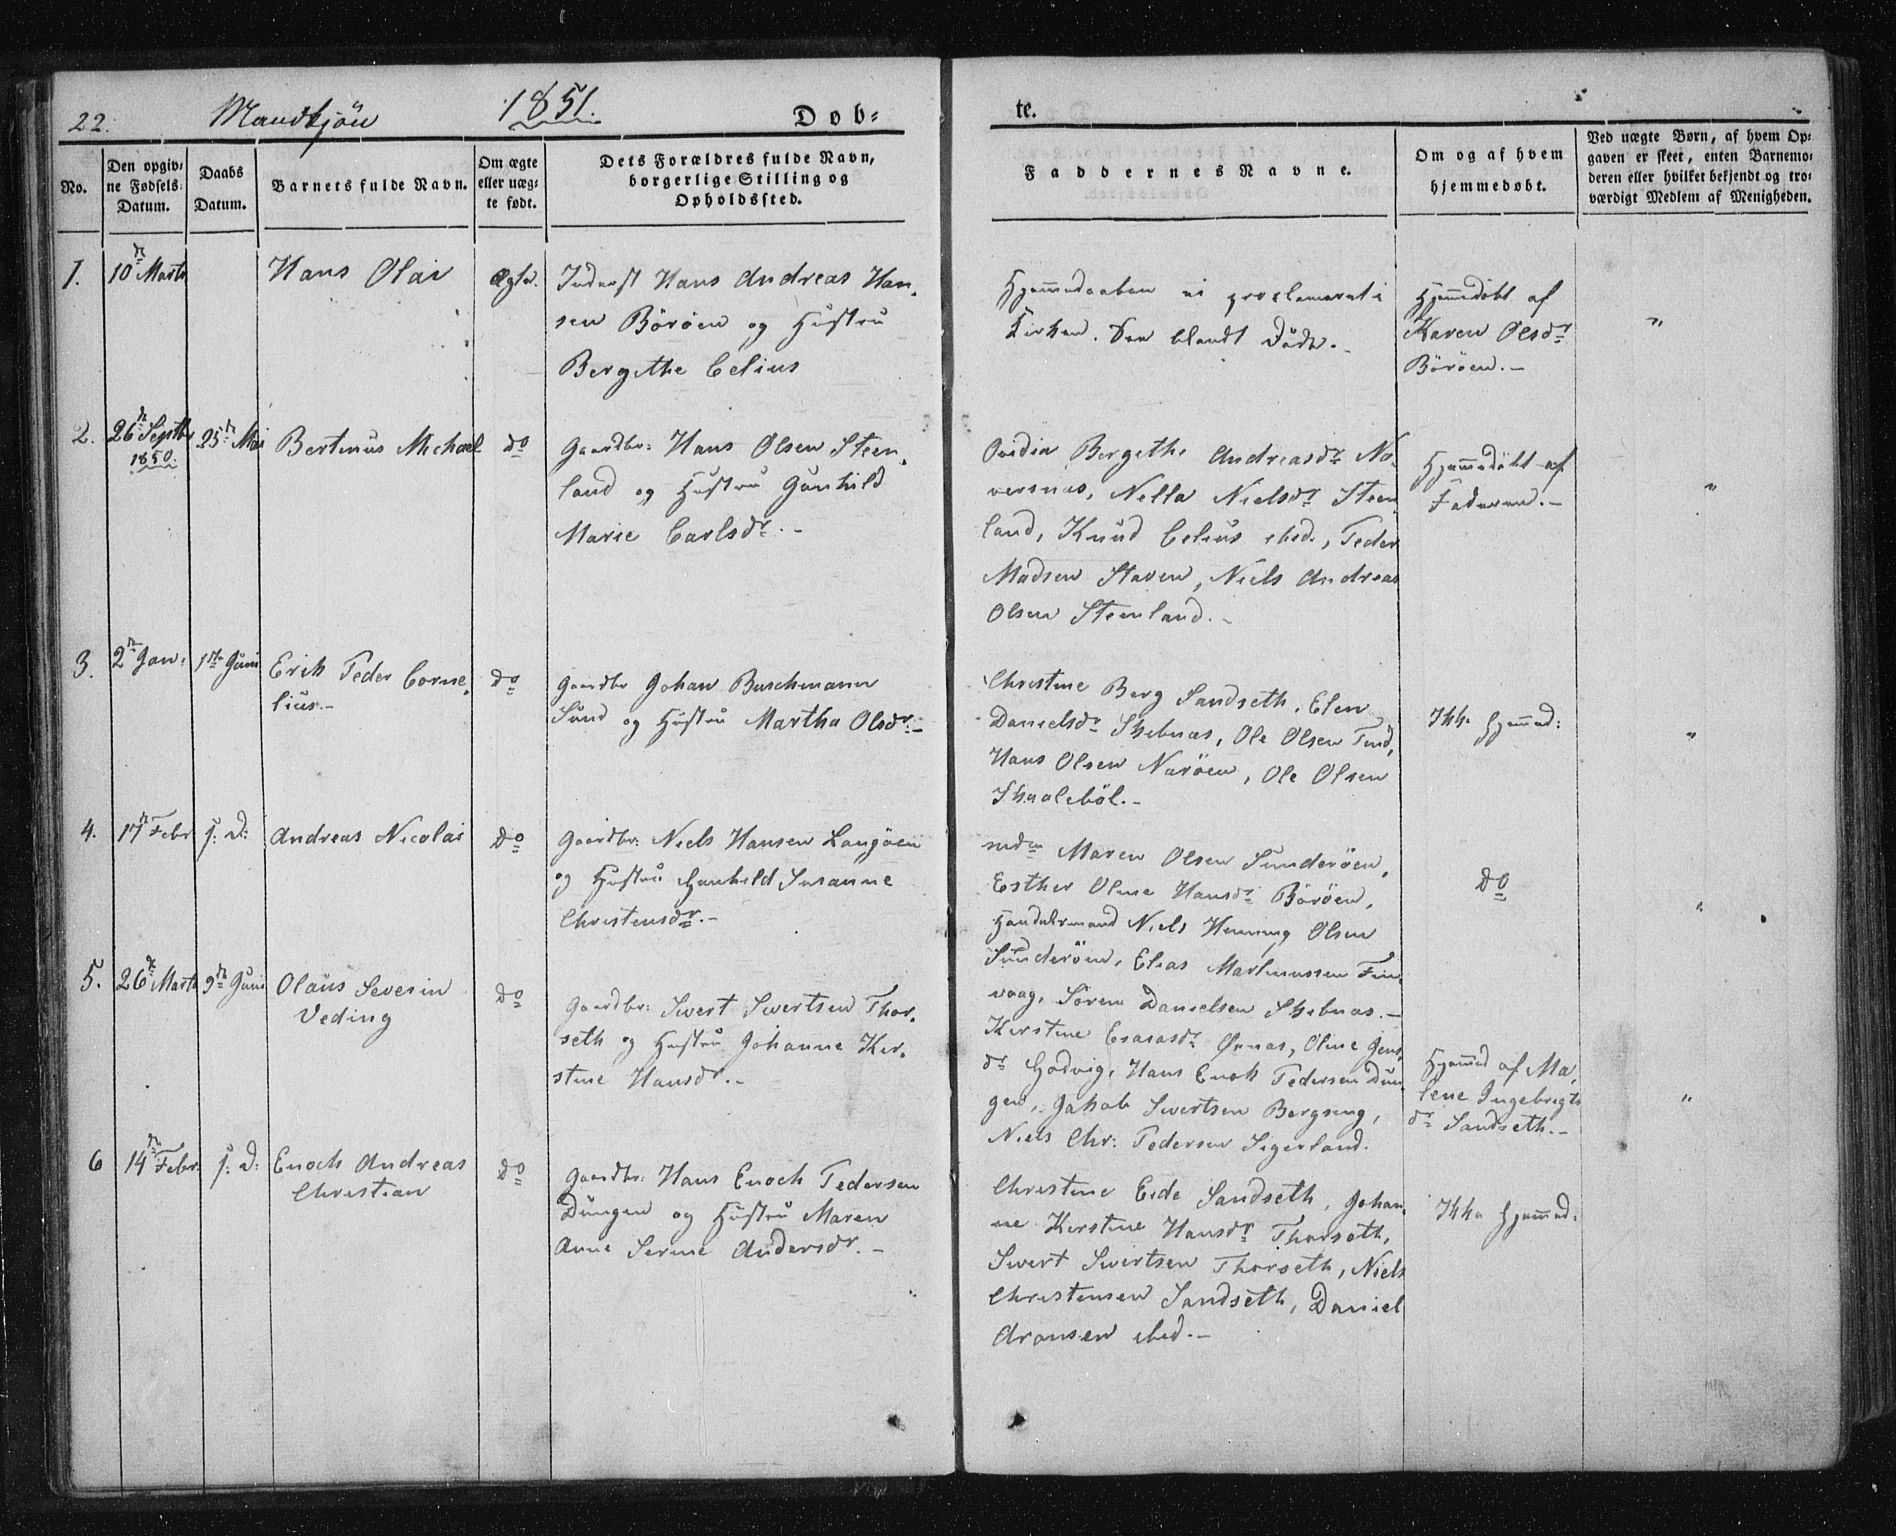 22. Mandkjön 1851. Döb-
te.
No.
Den opgiv-
ne Fødsels-
Datum.
Daabs
Datum.
Barnets fulde Navn.
Om ægte
eller uæg-
te født.
Dets Forældres fulde Navn,
borgerlige Stilling og
Opholdssted.
Faddernes Navne.
Om og af hvem
hjemmedøbt.
Ved uægte Børn, af hvem Op-
gaven er skeet, enten Barnemo-
deren eller hvilket bekjendt og tro-
værdigt Medlem af Menigheden.
1. 10n Marts
Hans Olai
Ægte.
Inderst Hans Andreas Han-
sen Böröen og Hustru
Bergithe Celius
Hjemmedaaben ei proclameret i
Kirken. See blandt Döde.-
Hjemmedöbt af
Karen Olsdr
Böröen.-
"
2. 26n Septbr
1850.
25n Mai
Bertinus Michael
do
Gaardbr: Hans Olsen Steen-
land og Hustru Gunhild
Marie Carlsdr.-
Ovidia Bergithe Andreasdr No-
versnas, Nella Nielsdr Steen
land, Knud Celius ibid., Peder
Madsen Staven, Niels Andreas
Olsen Steenland.-
Hjemmedöbt af
Faderen.-
"
3. 2n Jan: 1ste Juni
Erik Peder Corne-
lius.-
do
Gaardbr Johan Buschmann
Sund og Hustru Martha Olsdr.-
Christine Berg Sandseth, Elen
Danielsdr Skebnas, Ole Olsen Tind,
Hans Olsen Naröen, Ole Olsen
Skaaleböl.-
Ikke Hjemmed:
"
4. 17n Febr s. D:
Andreas Nicolai
Do
Gaardbr: Niels Hansen Langöen
og Hustru Gunhild Susanne
Christensdr.-
Maren Olsen Sunderöen,
Esther Oline Hansdr Böröen,
Handelsmand Niels Henning Olsen
Sunderöen, Elias Martinussen Fin-
vaag, Sören Danielsen Skebnas.-
Do
"
5. 26n Marts 9n Juni
Olaus Severin
Veding
Do
Gaardbr: Sivert Sivertsen Thor-
seth og Hustru Johanne Kir-
stine Hansdr.-
Kirstine Esaiasdr Ørnas, Oline Jens-
dr Godvig, Hans Enok Pedersen Dun
gen, Jakob Sivertsen Bergseng,
Niels Chr: Pedersen Sigerland.
Hjemmed af Ma-
lene Ingebrigts
dr Sandseth.-
"
6 14n Febr. s. D:
Enoch Andreas
Christian
Do
Gaardbr: Hans Enoch Pedersen
Dungen og Hustru Maren
Anne Serine Andersdr.-
Christine Eide Sandseth, Johan-
ne Kirstine Hansdr Thorseth,
Sivert Sivertsen Thorseth, Niels
Christensen Sandseth, Daniel
Aronsen ibid.-
Ikke Hjemmed: